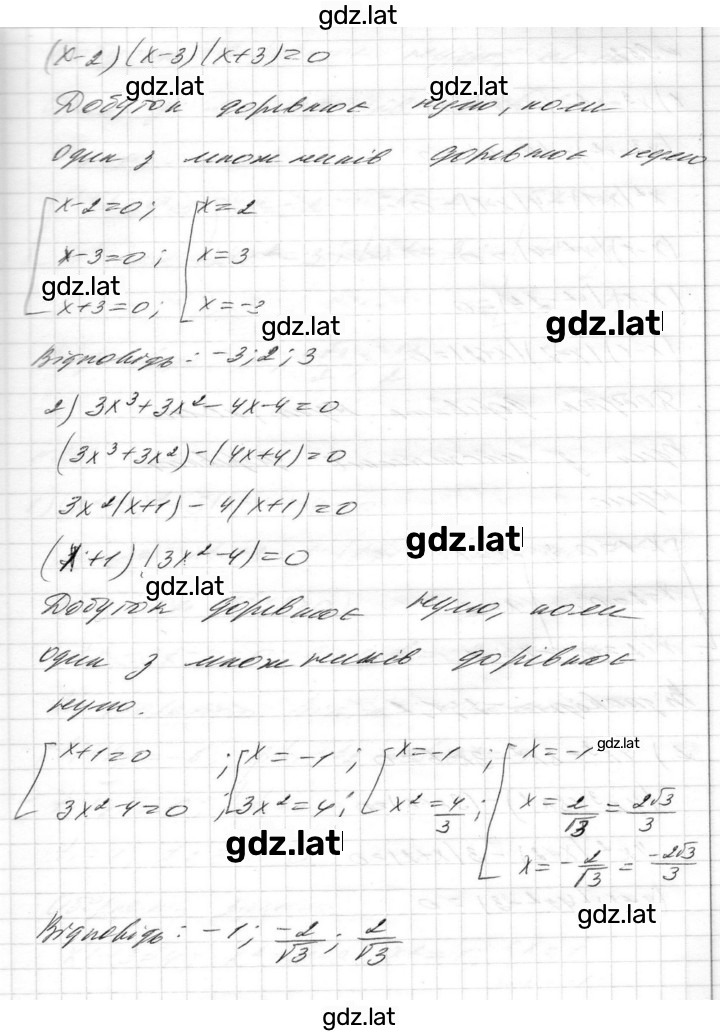 gdz.lat
(x-2)(x-3)(x+3)=0
gdz.lat gdz.lat
Добуток дорівнює нулю, коли
один з множників дорівнює нулю
x-2=0; x=2
x-3=0; x=3
gdz.lat
x+3=0; x=-3
gdz.lat gdz.lat
Відповідь: -3; 2; 3
2) 3x³+3x²-4x-4=0
(3x³+3x²)-(4x+4)=0
3x²(x+1)-4(x+1)=0
gdz.lat
(x+1)(3x²-4)=0
gdz.lat
Добуток дорівнює нулю, коли
один з множників дорівнює
нулю.
gdz.lat
x+1=0; x=-1; x=-1; x=-1
3x²-4=0; 3x²=4; x²=4/3; x=2/√3=2√3/3
gdz.lat
x=-2/√3=-2√3/3
gdz.lat
Відповідь: -1; -2/√3; 2/√3
gdz.lat